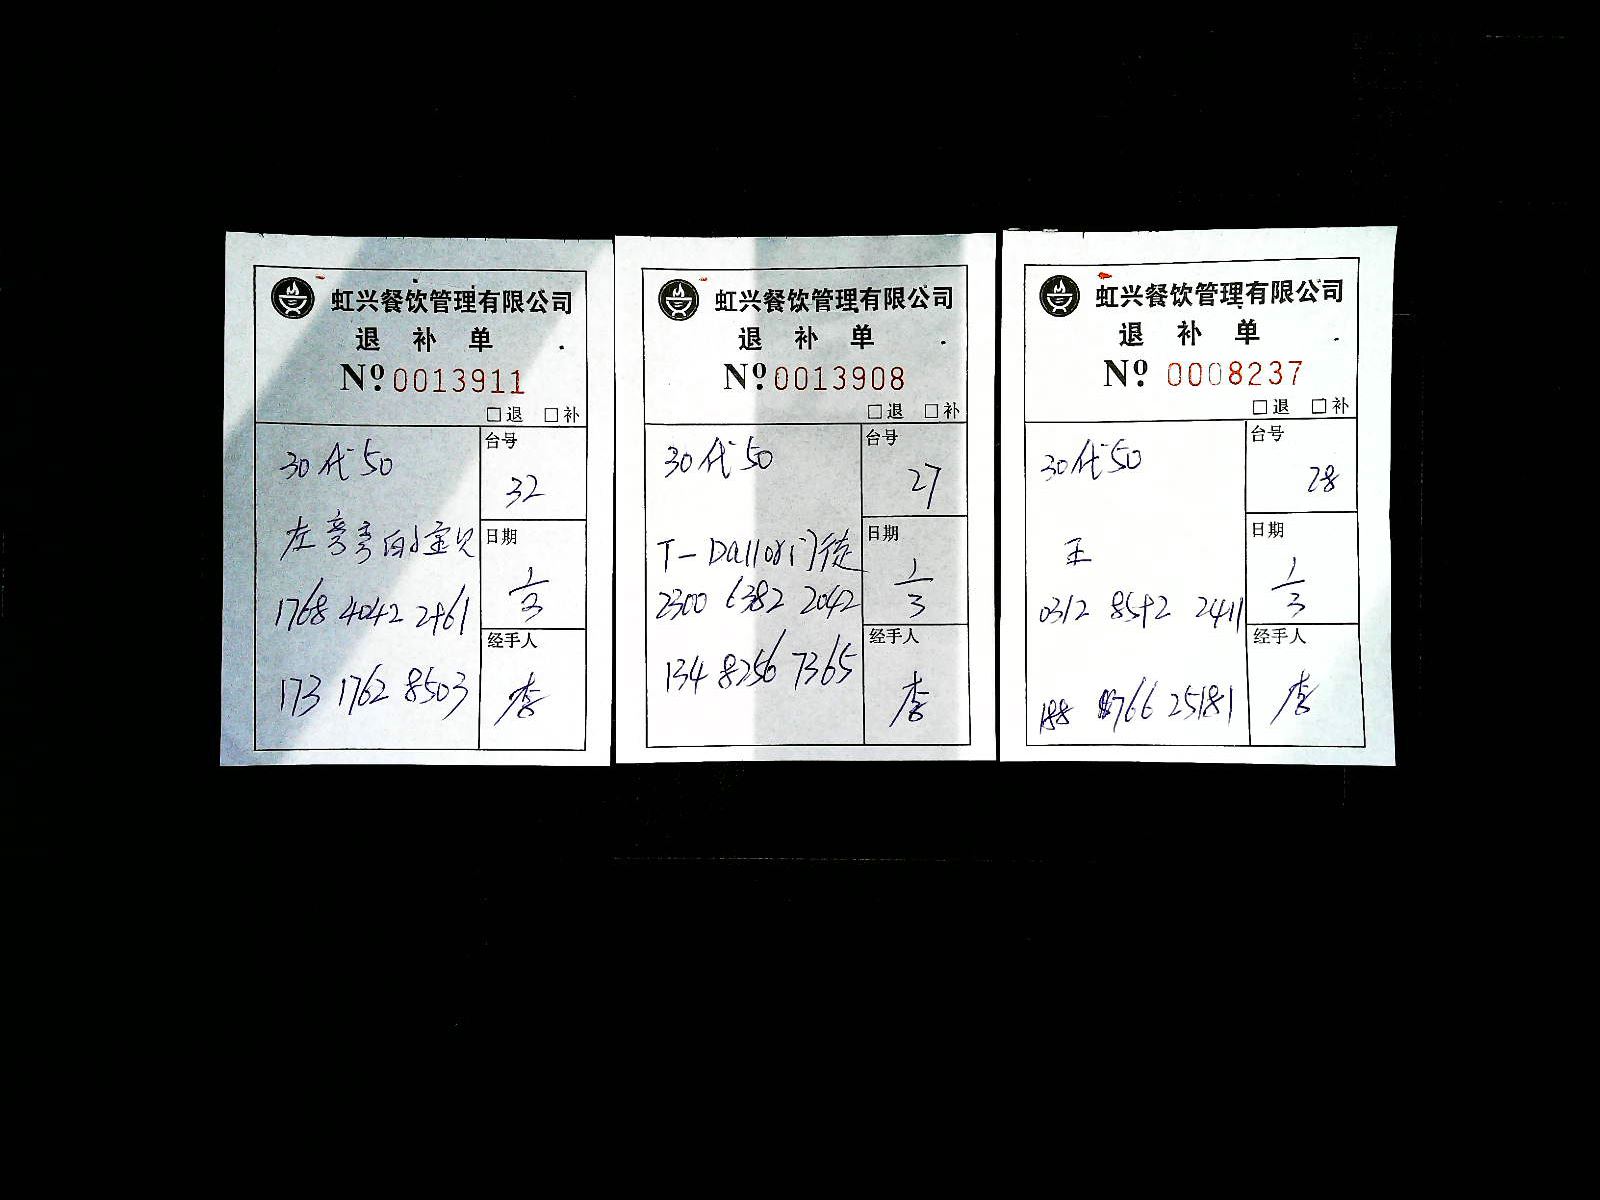 虹兴餐饮管理有限公司
退 补 单
Nº 0013911
□退 □补
30代50
台号
32
左弯弯的小宝贝
日期
1/3
1768 4042 2461
经手人
173 1762 8503
李
虹兴餐饮管理有限公司
退 补 单
Nº 0013908
□退 □补
30代50
台号
27
T-Dallori门徒
日期
1/3
2300 6382 2042
经手人
134 8256 7365
李
虹兴餐饮管理有限公司
退 补 单
Nº 0008237
□退 □补
30代50
台号
28
王
日期
1/3
0312 8592 2411
经手人
188 766 25181
李